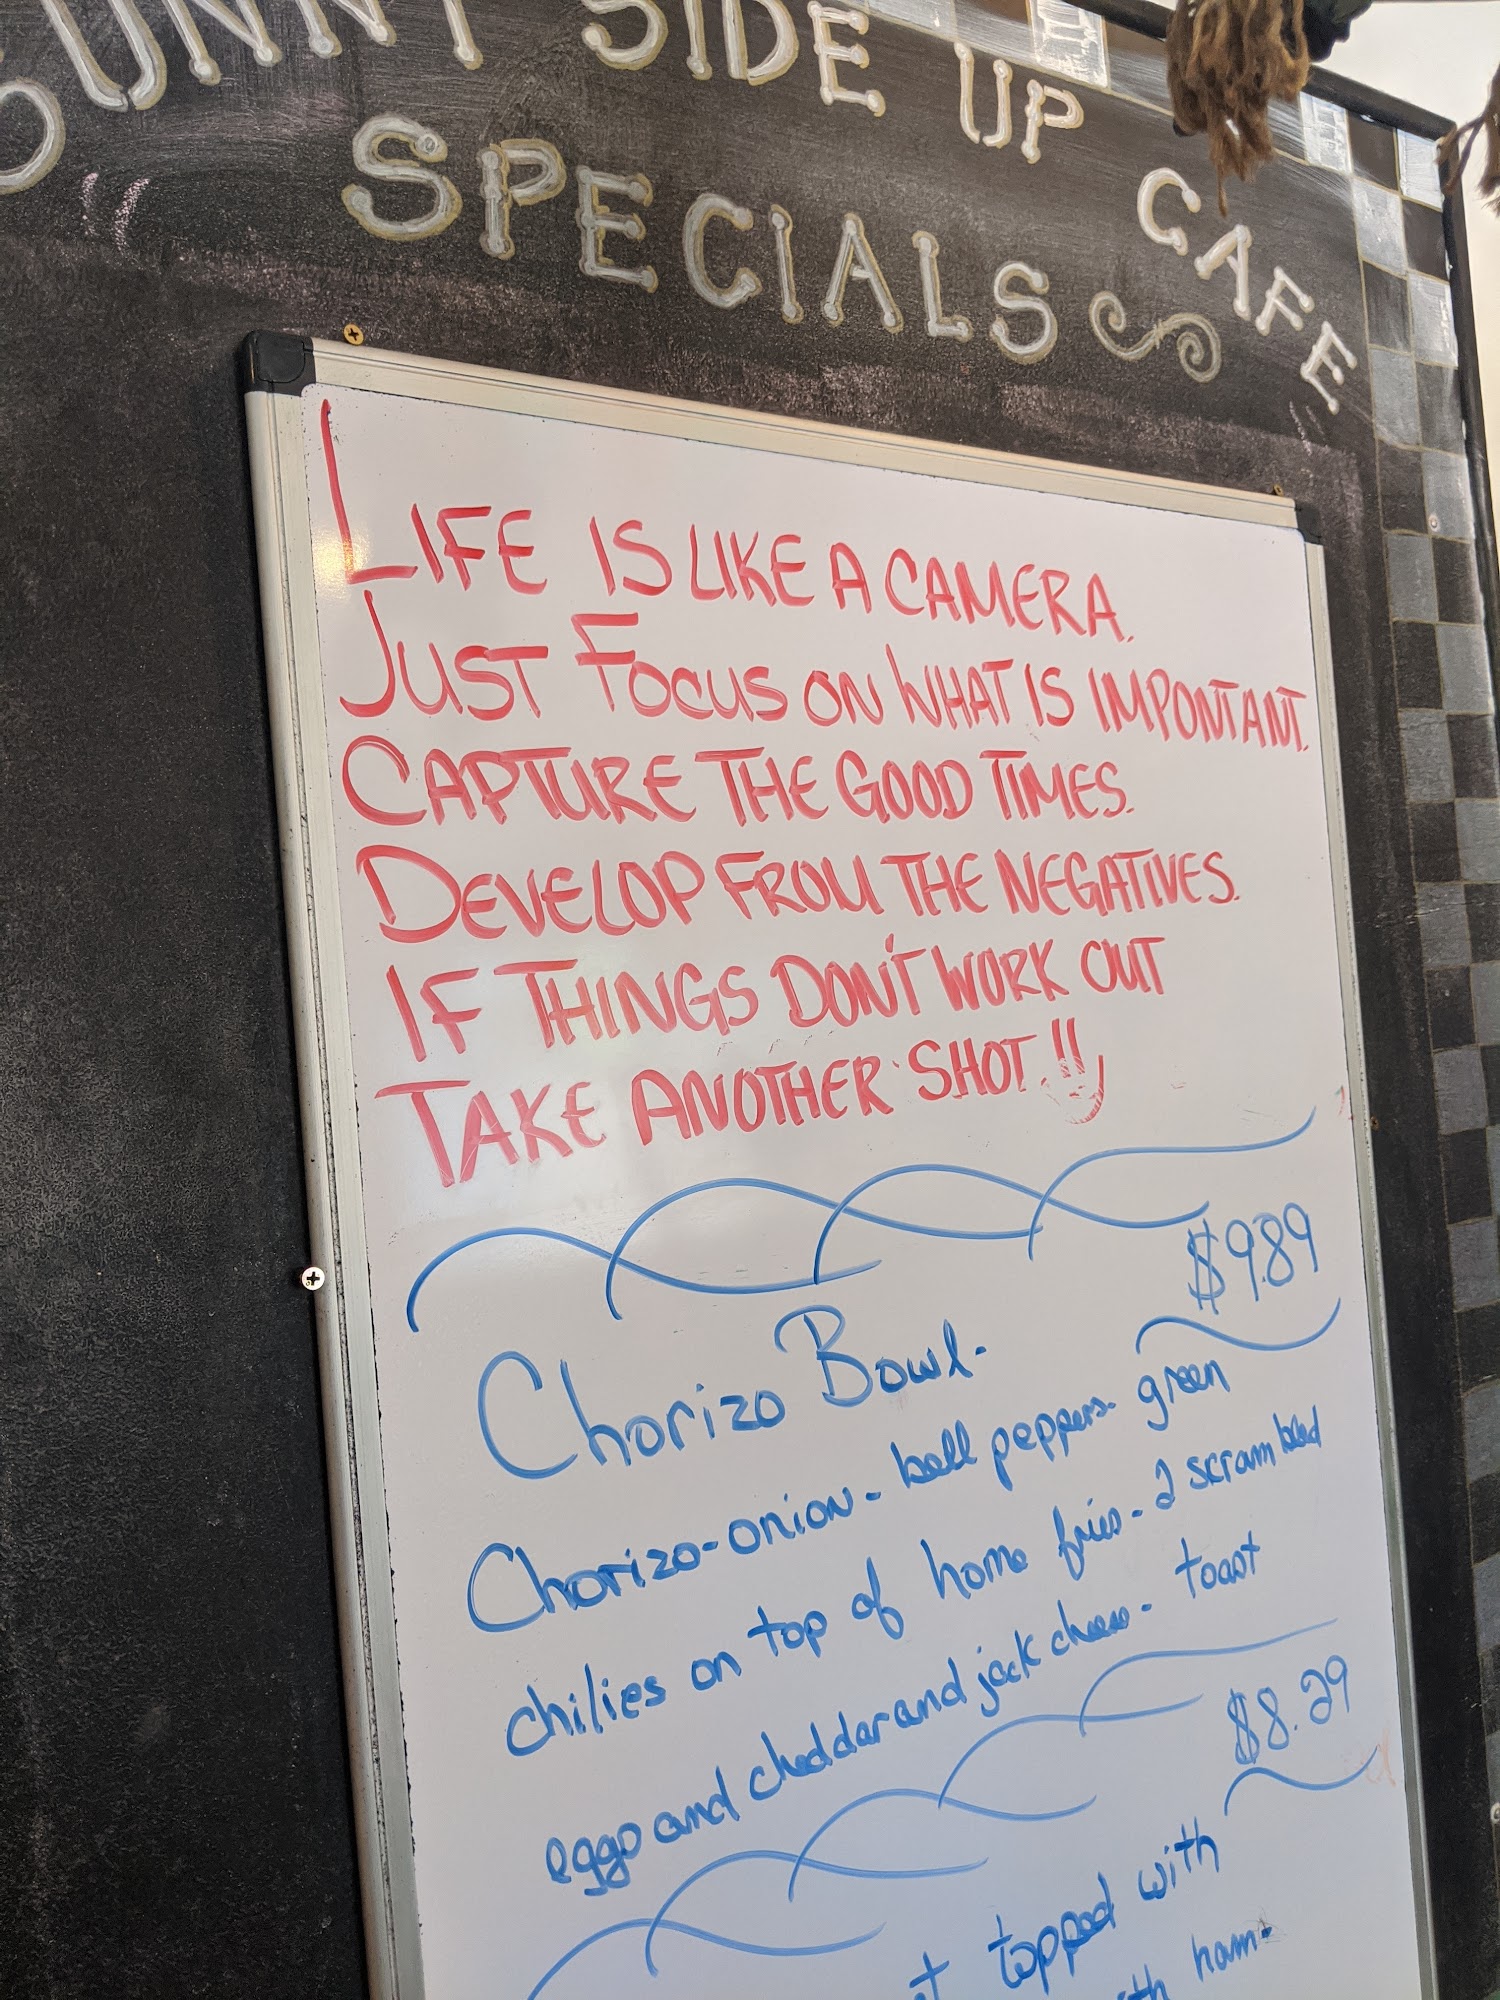 SUNNY SIDE UP CAFE
SPECIALS
LIFE IS LIKE A CAMERA.
JUST FOCUS ON WHAT IS IMPORTANT.
CAPTURE THE GOOD TIMES.
DEVELOP FROM THE NEGATIVES.
IF THINGS DON'T WORK OUT
TAKE ANOTHER SHOT.
$9.89
Chorizo Bowl-
Chorizo-onion-bell peppers-green
chilies on top of home fries-2 scrambled
eggs and cheddar and jack cheese-toast
$8.29
topped with
ham-